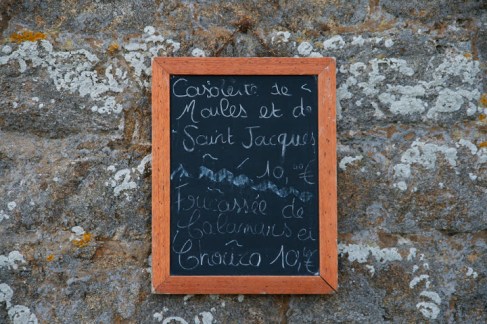 Casolette de
Moules et de
Saint Jacques
~ / 10,00€
Fricassée de
Calamars et
Chorizo 10,00€